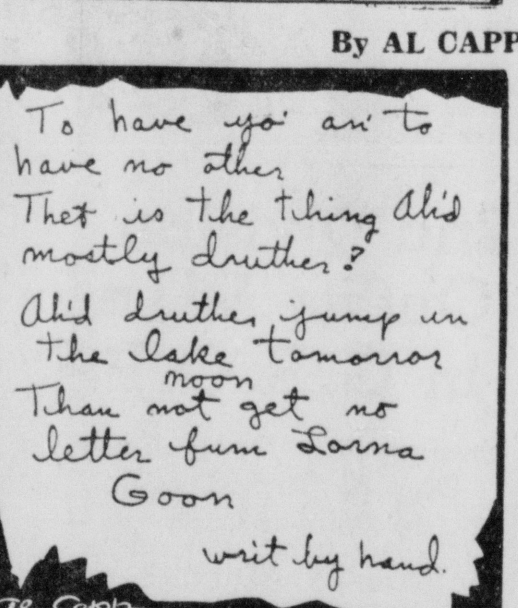 By AL CAPP
To have yo' an' to
have no other
Thet is the thing Ah'd
mostly druther?
Ah'd druther jump in
the lake tomorror
noon
Than not get no
letter fum Lorna
Goon
writ by hand.